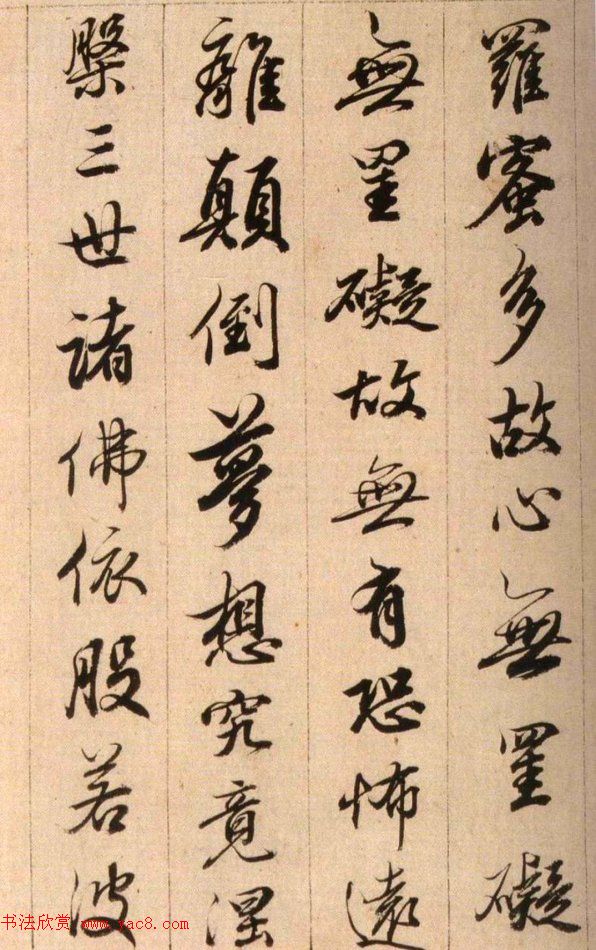 羅蜜多故心無罣礙
無罣礙故無有恐怖遠
離顛倒夢想究竟涅
槃三世諸佛依般若波
书法欣赏 www.yac8.com